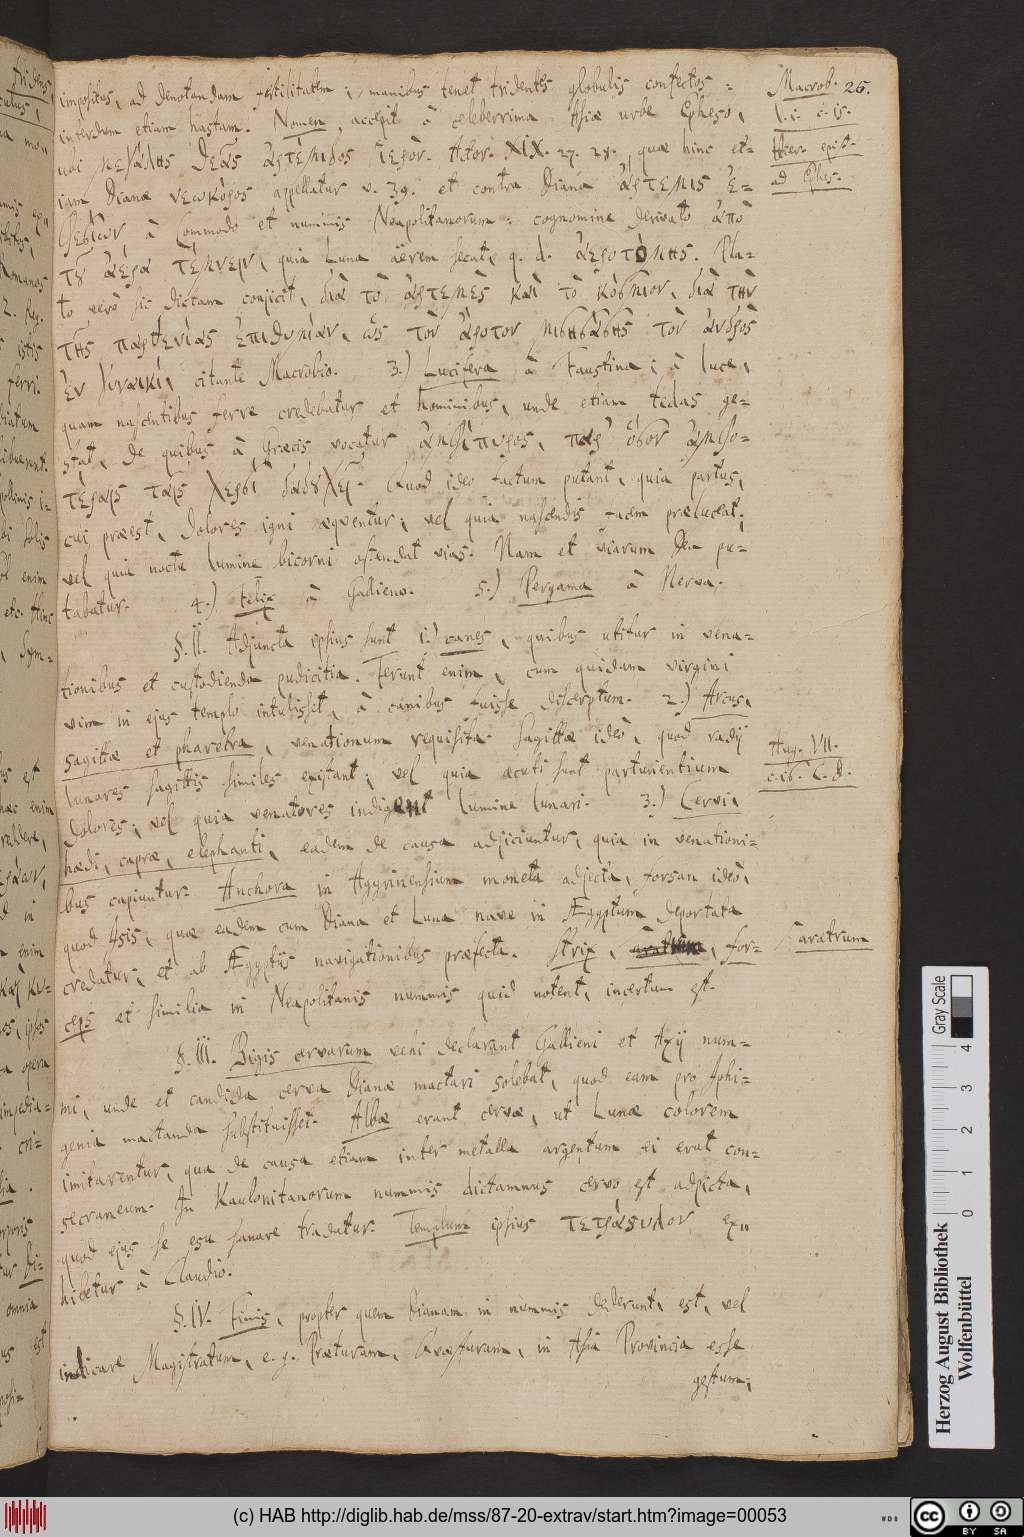 impositus, ad denotandam fertilitatem; manibus tenet tridentes globulis confectos =
interdum etiam hastam. Nomen, accepit à celeberrima Asiæ urbe Epheso,
ubi μεγάλης θεᾶς ἀρτέμιδος ἱερὸν. Actor. XIX. 27. 28., quæ hinc et=
iam Dianæ νεωκόρος appellatur v. 39. et contra Diana ἄρτεμις ἐ=
φεσίων, à Commodo et nummis Neapolitanorum: cognomine derivato ἀπὸ
τȣ͂ ἀέρα τέμνειν, quia Luna aërem secat, q. d. ἀεροτόμης. Pla=
to verò sic dictam conjicit, διὰ τὸ ἀρτεμὲς καὶ τὸ κόσμιον, διὰ τὴν
τῆς παρθενίας ἐπιθυμίαν, ὡς τὸν ἄροτον μισησάσης τὸν ἀνδρὸς
ἐν γυναικί, citante Macrobio. 3.) Lucifera à Faustina; à luce,
quam nascentibus ferre credebatur et hominibus, unde etiam tedas ge=
stat, de quibus à Græcis vocatur ἀμφίπυρος, παρ' ὅσον ἀμφο=
τέραις ταῖς χερσὶ δᾳδȣχεῖ. Quod ideo factum putant, quia partus,
cui præest, dolores igni æquentur; vel quia nascendis facem præluceat;
vel quia nocte lumine bicorni ostendat vias. Nam et viarum Dea pu=
tabatur. 4.) Felix à Galieno. 5.) Pergama à Nerva.
§. II. Adjuncta ipsius sunt 1.) canes, quibus utitur in vena=
tionibus et custodienda pudicitia. Ferunt enim, cum quidam virgini
vim in ejus templo intulisset, à canibus fuisse discerptum. 2.) Arcus,
sagittæ et pharetra, venationum requisita. Sagittæ ideò, quod radij
lunares sagittis similes existant; vel quia acuti sunt parturientium
dolores; vel quia venatores indigent lumine lunari. 3.) Cervi,
hædi, capræ, elephanti, eadem de causa adjiciuntur, quia in venationi=
bus capiuntur. Anchora in Agyrinensium moneta adjecta, forsan ideò,
quod Isis, quæ eadem cum Diana et Luna nave in Ægyptum deportata
credatur, et ab Ægyptiis navigationibus præfecta. Strix, aratrum, for=
ceps et similia in Neapolitanis nummis quid notent, incertum est.
§. III. Bigis cervarum vehi declarant Gallieni et Axij num=
mi, unde et candida cerva Dianæ mactari solebat, quod eam pro Iphi=
genia mactanda substituisset. Albæ erant cervæ, ut Lunæ colorem
imitarentur, qua de causa etiam inter metalla argentum ei erat con=
secraneum. In Kaulonitanorum nummis dictamnus cervo est adjecta,
quod ejus se esu sanare tradatur. Templum ipsius τετράστυλον ex=
hibetur à Claudio.
§. IV. Finis, propter quem Dianam in nummis dederunt, est, vel
indicare Magistratum, e. g. Præturam, Quæsturam, in Asia Provincia esse
gestum;
Macrob. 26.
l. 1. c. 15.
Hier. epist.
ad Ephes.
Aug. VII.
c. 16. C. D.
aratrum
Gray Scale
0 1 2 3 4
Herzog August Bibliothek
Wolfenbüttel
(c) HAB http://diglib.hab.de/mss/87-20-extrav/start.htm?image=00053
CC BY SA